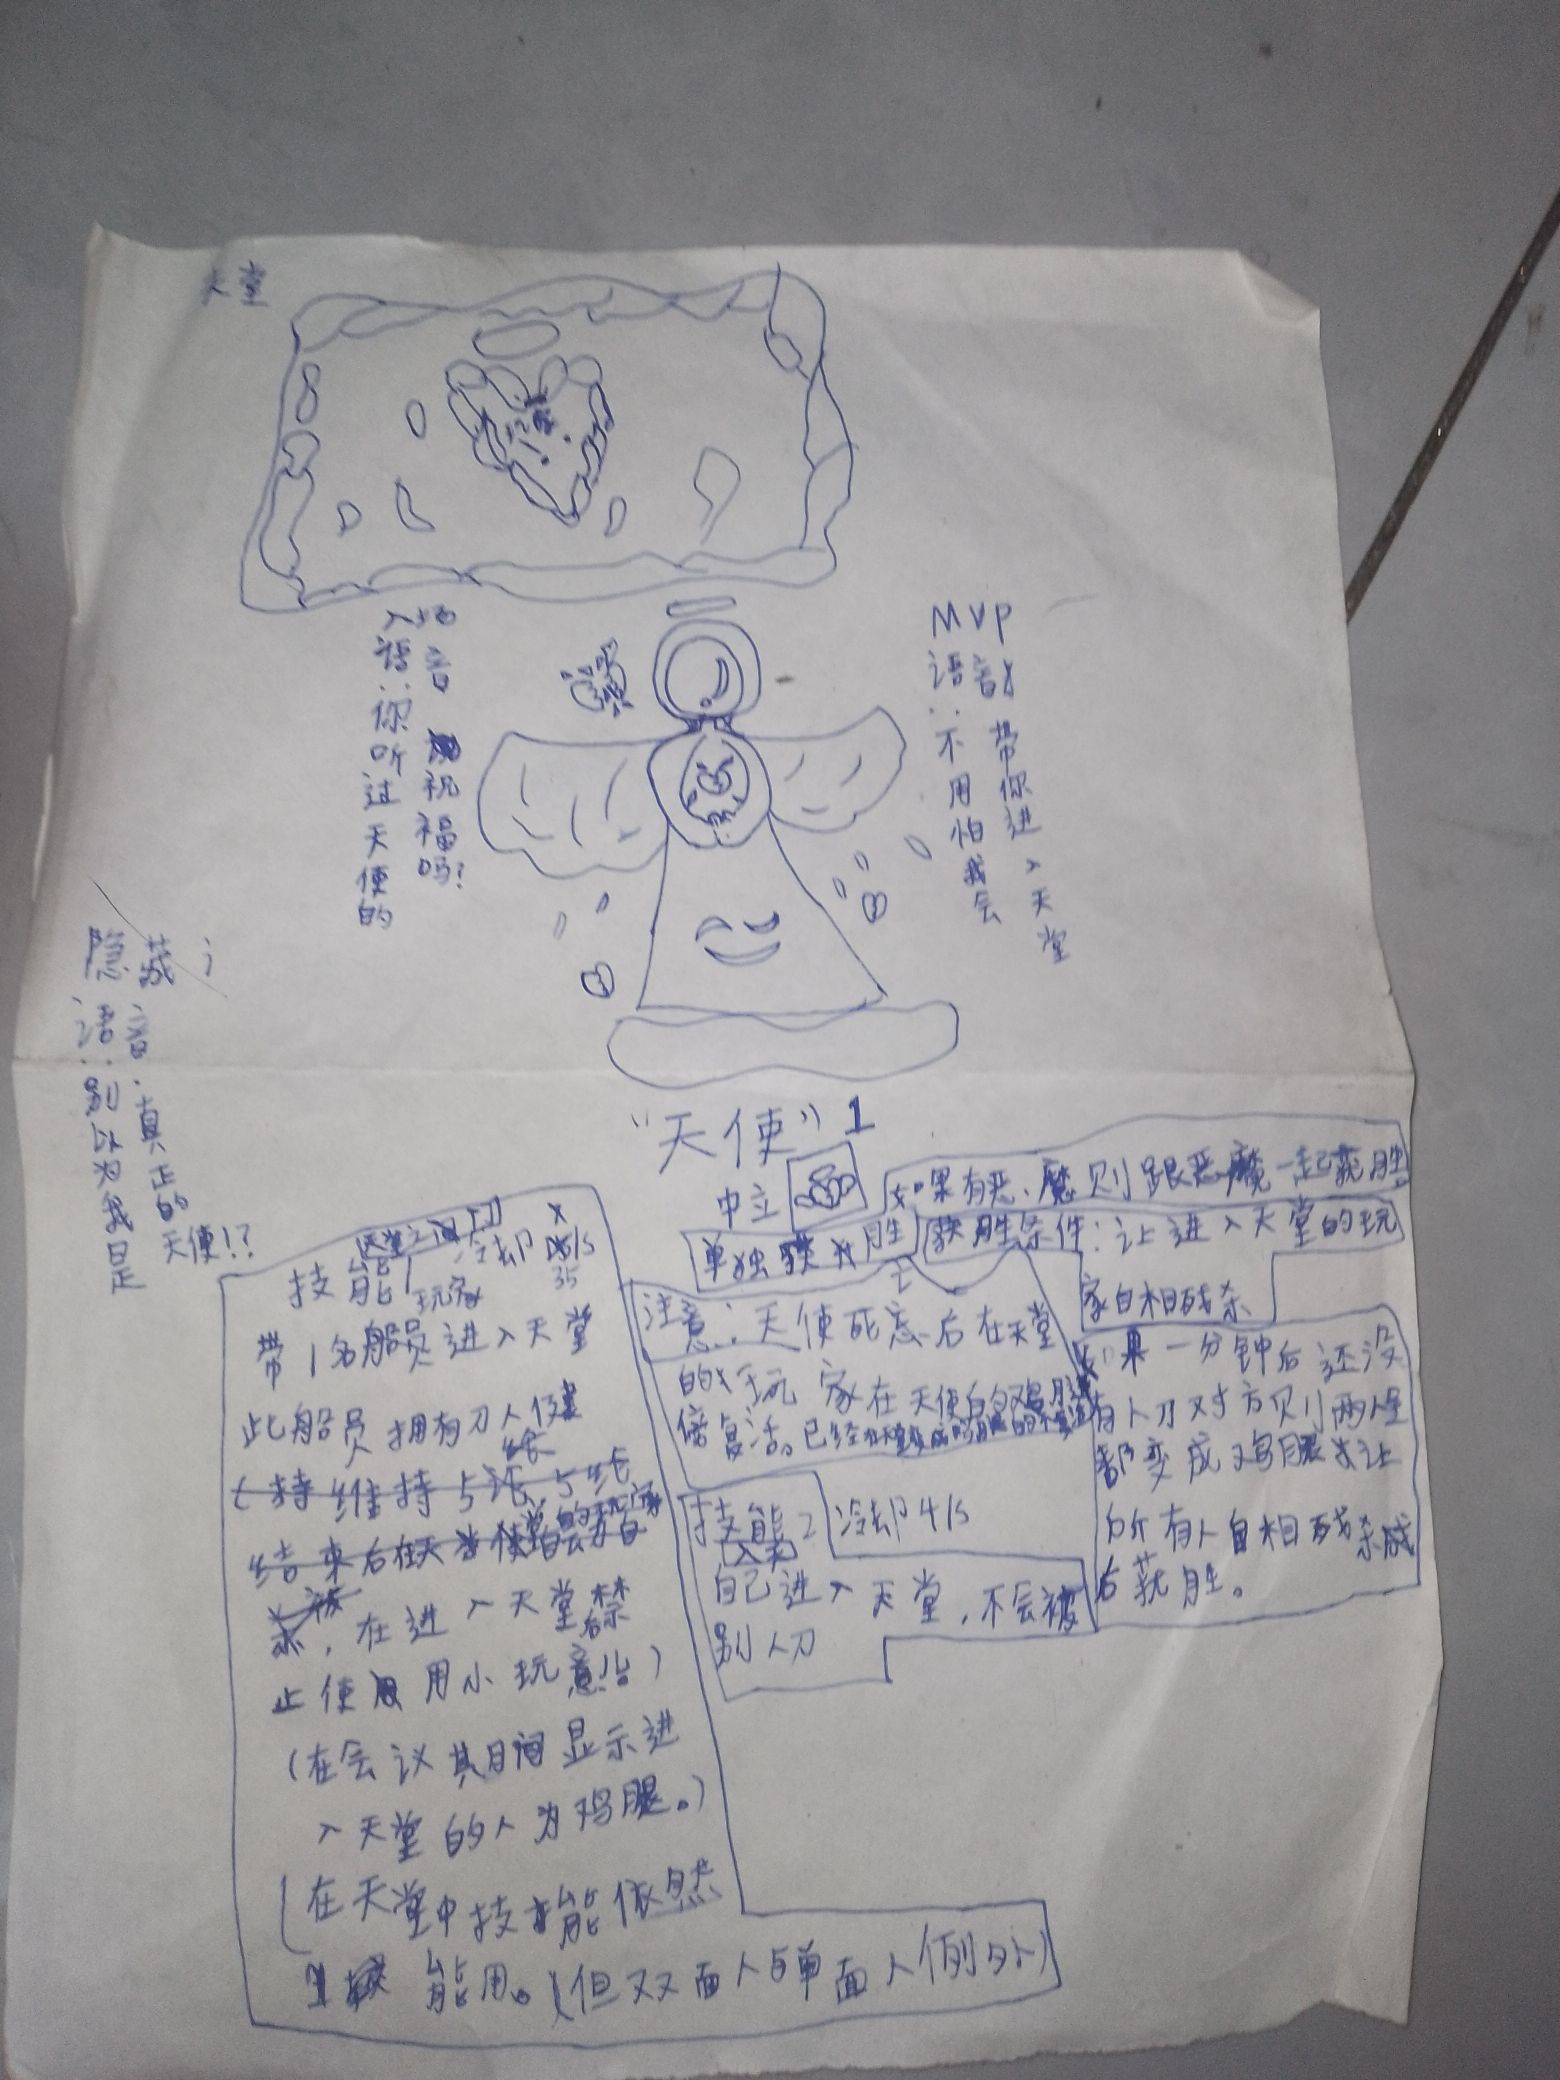 天堂
入场语音：你听过天使的祝福吗？
MVP
语音：不用怕我会带你进入天堂
隐藏
语音：别以为我是真正的天使！？
“天使”1
中立
如果有恶魔则跟恶魔一起获胜
单独获胜
获胜条件：让进入天堂的玩
家自相残杀
技能1
天堂之门
冷却
35
玩家
带1名船员进入天堂
此船员拥有刀人
在进入天堂后禁
止使用小玩意!!
（在会议期间显示进
入天堂的人为鸡腿。）
（在天堂中技能依然
能用。（但双面人与单面人例外）
注意：天使死亡后在天堂
的玩家在天使的鸡腿
傍复活。已经
技能2
冷却4/s
入天
自己进入天堂，不会被
别人刀
如果一分钟后还没
有人刀对方则两人
都变成鸡腿 让
所有人自相残杀
后获胜。